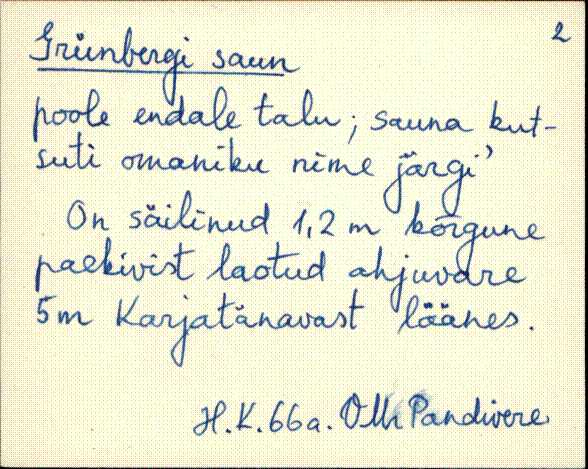 2
Grünbergi saun
poole endale talu; sauna kut-
suti omaniku nime järgi’
On säilinud 1,2 m kõrgune
paekivist laotud ahjuvare
5m Karjatänavast läänes.
H.K. 66a. VMr Pandivere